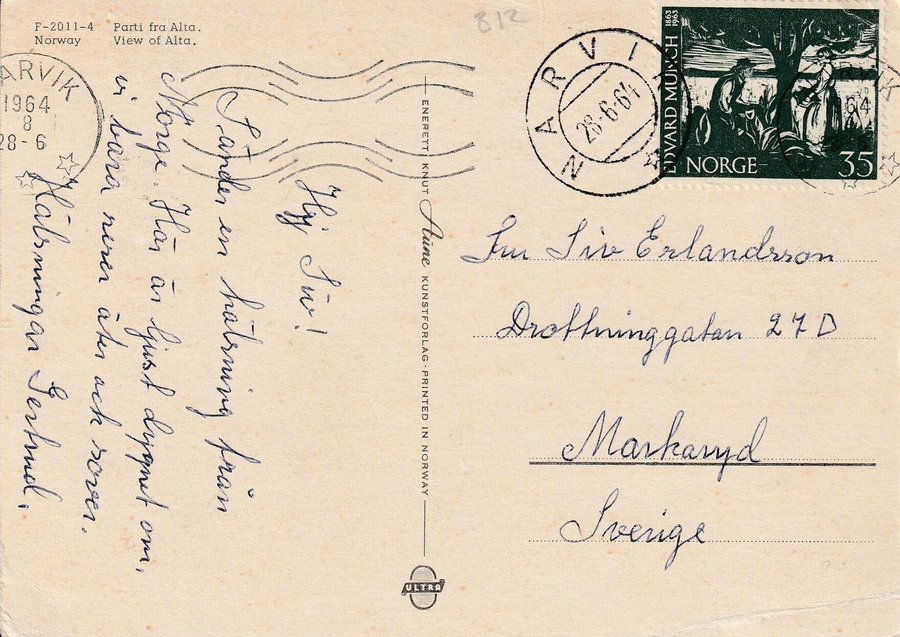 F-2011-4 Parti fra Alta.
Norway View of Alta.
B12
ARVIK
1964
8
28-6
NARVIK
28-6-64
EDVARD MUNCH 1863 1963
NORGE 35
Hej Siv!
Sänder en hälsning från
Norge. Här är ljust dygnet om,
vi bara reser äter och sover.
Hälsningar Gertrud.
ENERETT KNUT Aune KUNSTFORLAG - PRINTED IN NORWAY
ULTRA
Fru Siv Erlandsson
Drottninggatan 27D
Markaryd
Sverige